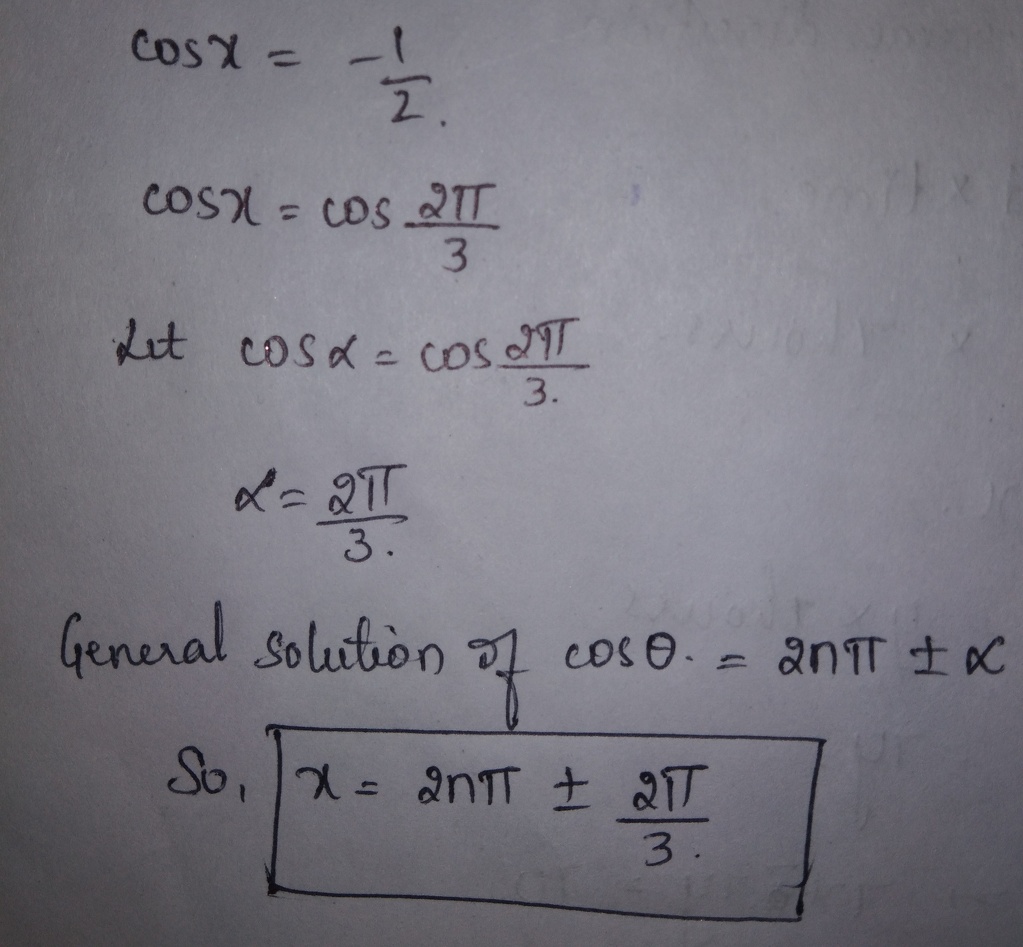 cosx = -1/2.
cosx = cos 2π/3
Let cosα = cos 2π/3.
α = 2π/3.
General solution of cosθ. = 2nπ ± α
So, x = 2nπ ± 2π/3.